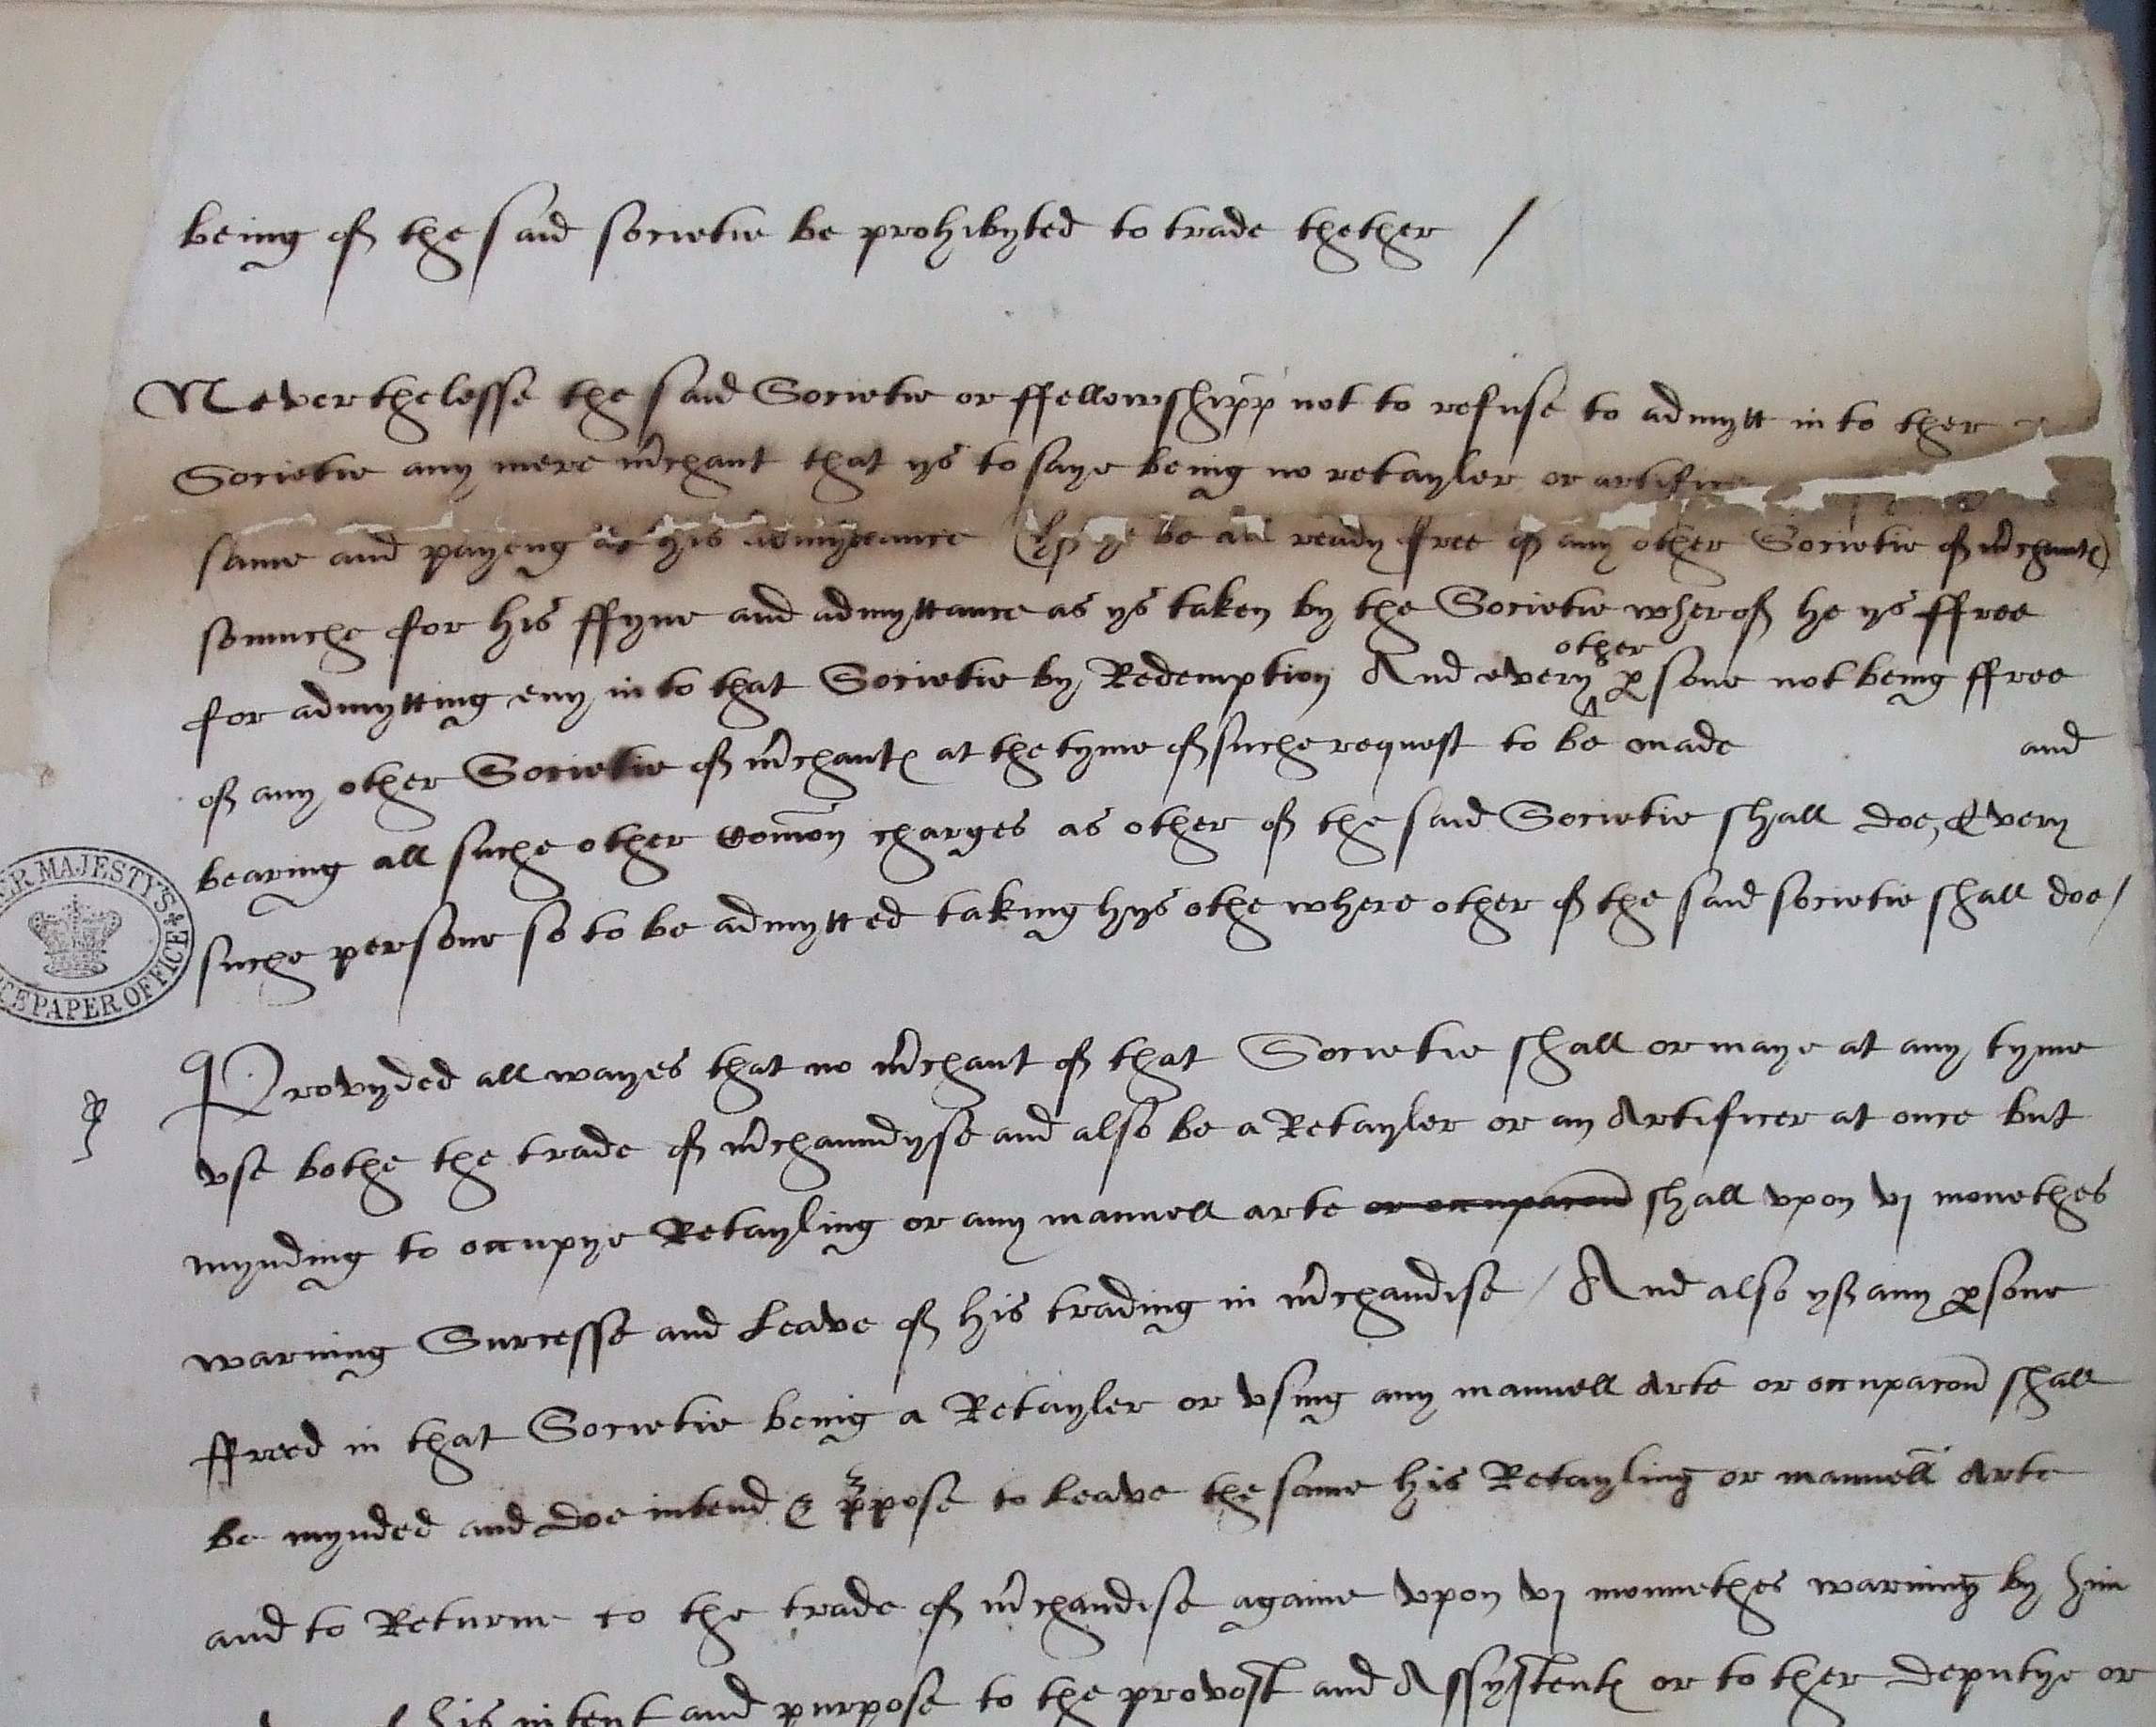 being of the said societie be prohibyted to trade thether /
Neverthelesse the said Societie or ffellowshipp not to refuse to admytt in to ther
Societie any mere mʳchant that ys to saye being no retayler or artificer
same and payeng at his admyttance (yf he be all ready free of any other Societie of mʳchantꝭ)
somuche for his ffyne and admyttance as ys taken by the Societie wherof he ys ffree
other
for admytting eny in to that Societie by Redemption And every ^ ꝑsone not being ffree
of any other Societie of mʳchantꝭ at the tyme of suche request to be made and
bearing all suche other com̄on charges as other of the said Societie shall doe, Every
suche persone so to be admytted taking hys othe where other of the said societie shall doe /
HER MAJESTY'S STATE PAPER OFFICE
Provyded all wayes that no mʳchant of that Societie shall or maye at any tyme
vse bothe the trade of mʳchaundyse and also be a Retayler or an Artificer at once but
mynding to occupye Retayling or any manuell arte or occupacon̄ shall vpon vj monethes
warning Surcesse and Leave of his trading in mʳchandise / And also yf any ꝑsone
ffreed in that Societie being a Retayler or vsing any manuell Arte or occupacon̄ shall
be mynded and doe intend & ꝑpose to Leave the same his Retayling or manuell Arte
and to Returne to the trade of mʳchandise againe vpon vj monnethes warning by him
of his intent and purpose to the provost and Assystentꝭ or to ther deputye or